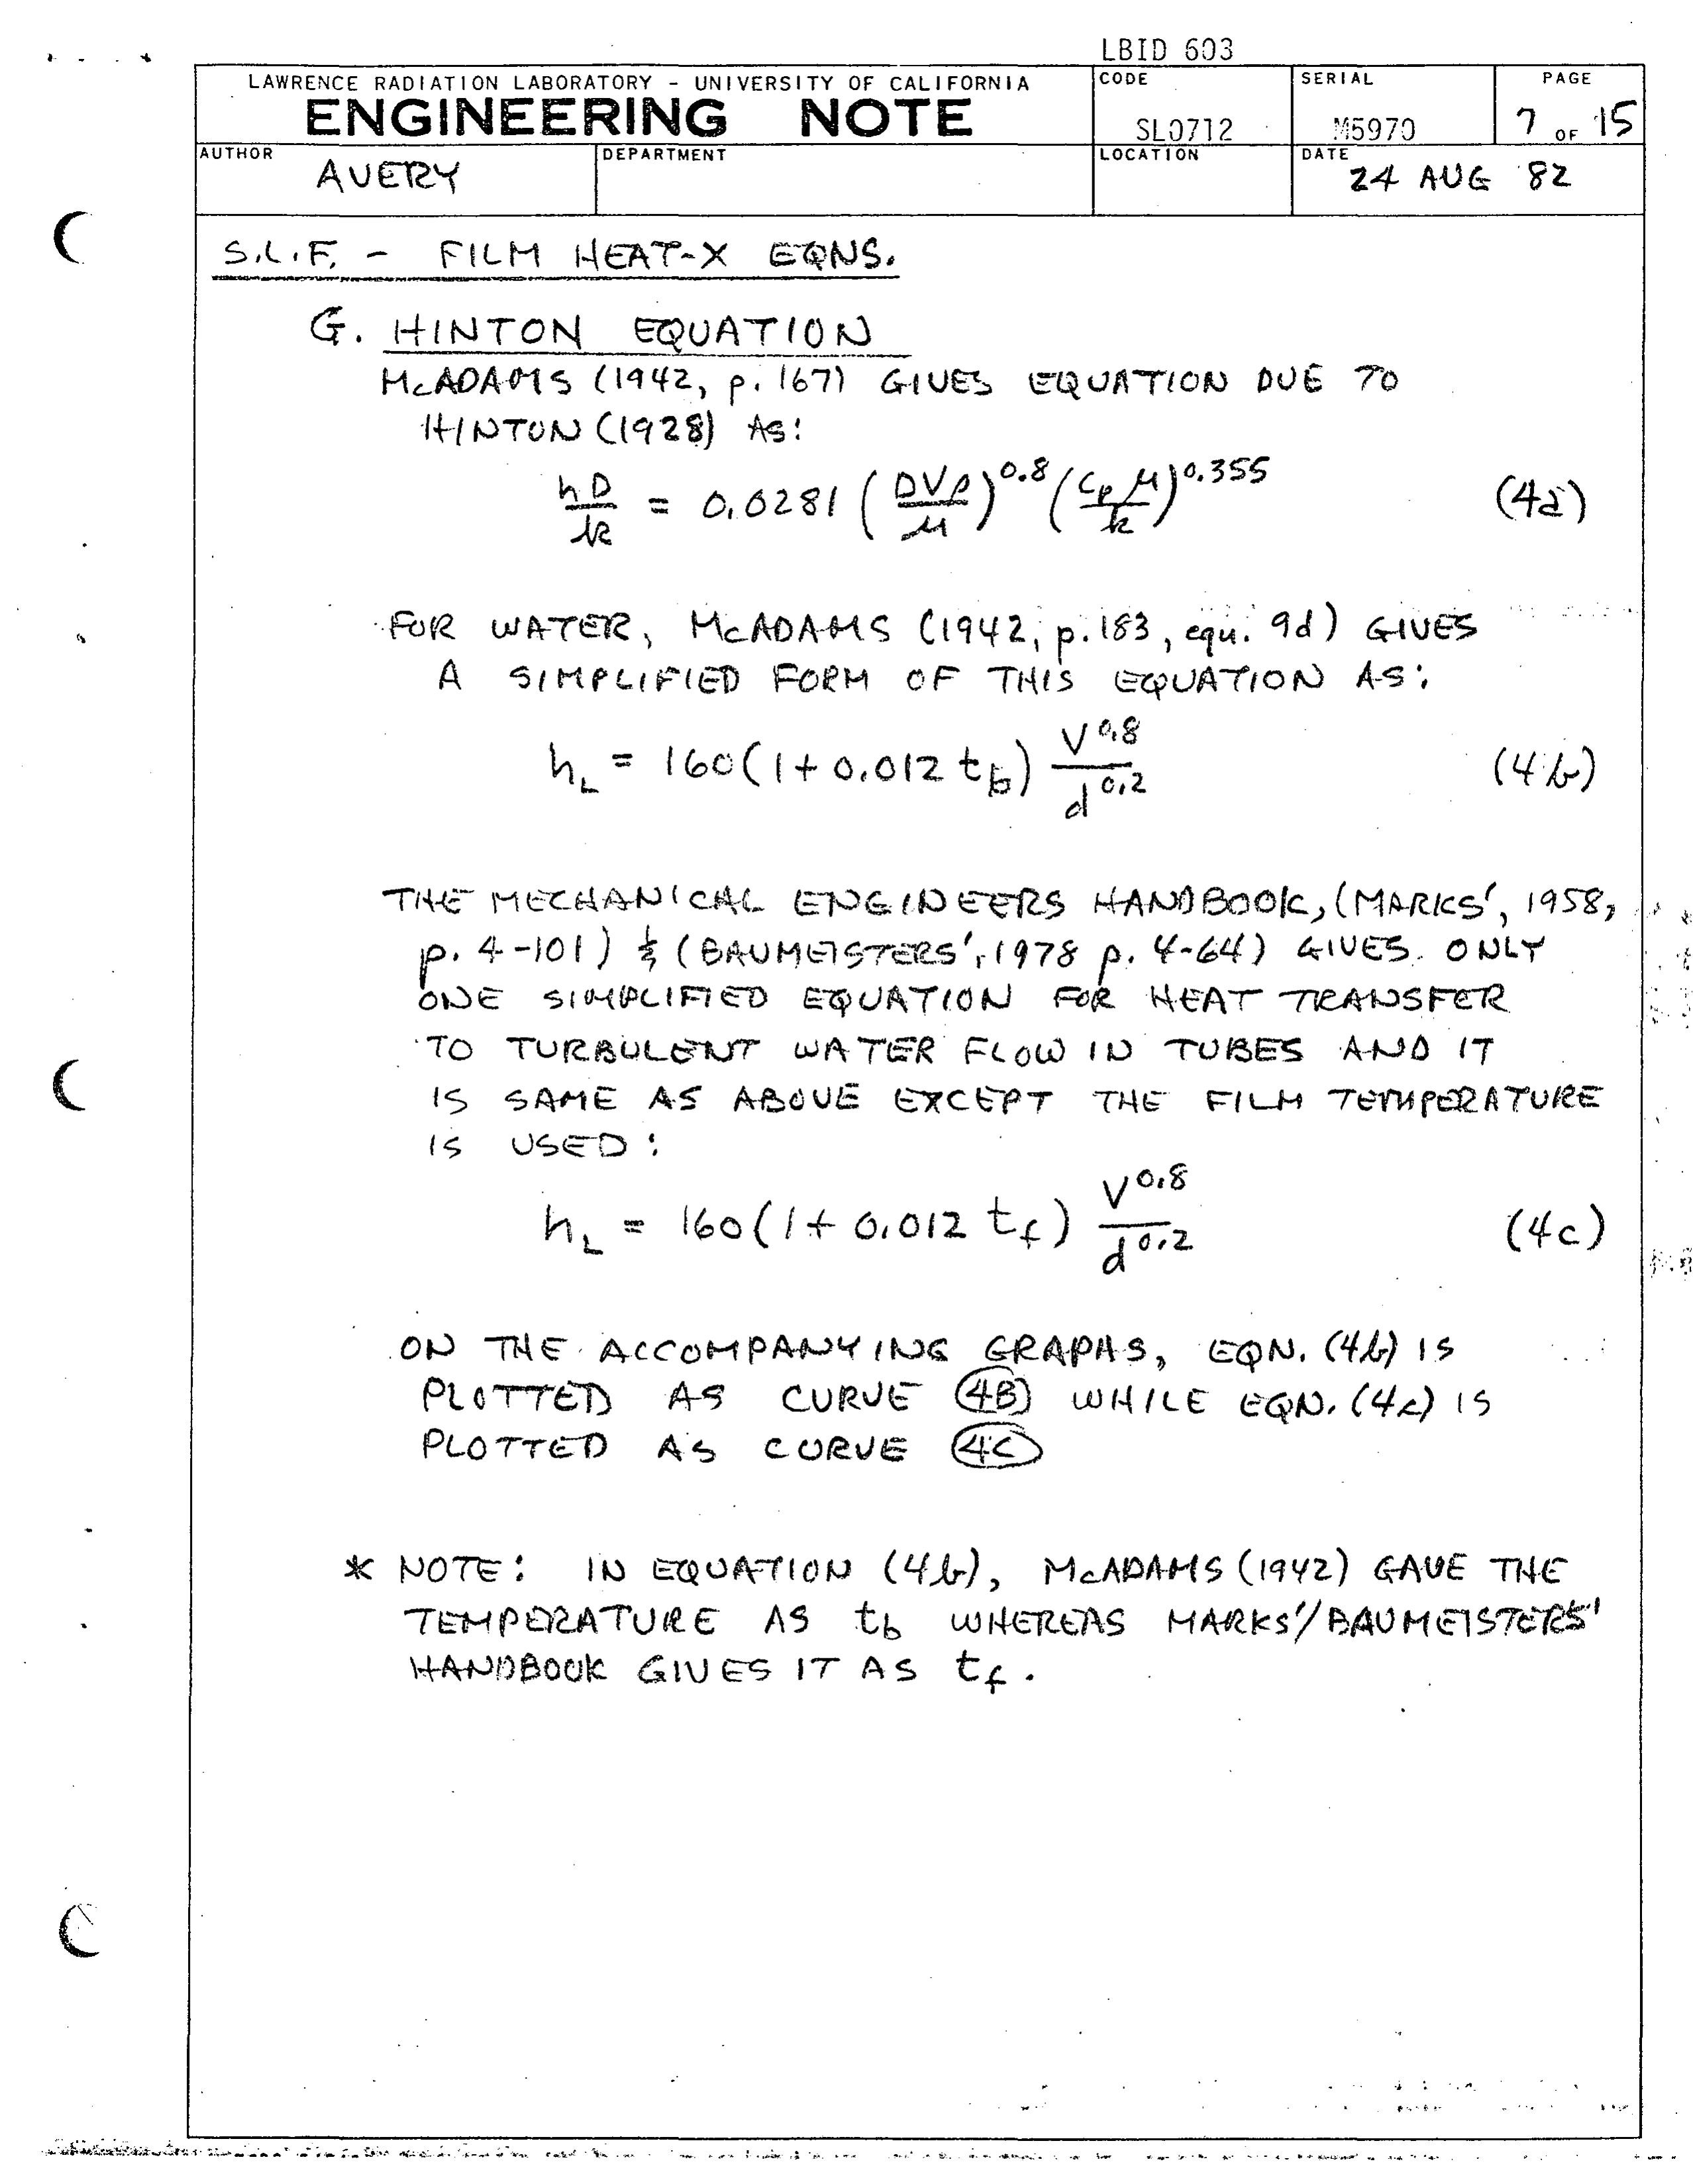 LBID 603
LAWRENCE RADIATION LABORATORY - UNIVERSITY OF CALIFORNIA
ENGINEERING NOTE
CODE
SL0712
SERIAL
M5970
PAGE
7 OF 15
AUTHOR
AVERY
DEPARTMENT
LOCATION
DATE
24 AUG 82
S.L.F. - FILM HEAT-X EQNS.
G. HINTON EQUATION
McADAMS (1942, p. 167) GIVES EQUATION DUE TO
HINTON (1928) AS:
hD/k = 0.0281 (DVρ/μ)^0.8 (Cpμ/k)^0.355 (4a)
FOR WATER, McADAMS (1942, p. 183, equ. 9d) GIVES
A SIMPLIFIED FORM OF THIS EQUATION AS:
h_L = 160(1 + 0.012 t_b) V^0.8/d^0.2 (4b)
THE MECHANICAL ENGINEERS HANDBOOK, (MARKS', 1958,
p. 4-101) & (BAUMEISTERS', 1978 p. 4-64) GIVES ONLY
ONE SIMPLIFIED EQUATION FOR HEAT TRANSFER
TO TURBULENT WATER FLOW IN TUBES AND IT
IS SAME AS ABOVE EXCEPT THE FILM TEMPERATURE
IS USED:
h_L = 160(1 + 0.012 t_f) V^0.8/d^0.2 (4c)
ON THE ACCOMPANYING GRAPHS, EQN. (4b) IS
PLOTTED AS CURVE (4B) WHILE EQN. (4c) IS
PLOTTED AS CURVE (4C)
* NOTE: IN EQUATION (4b), McADAMS (1942) GAVE THE
TEMPERATURE AS t_b WHEREAS MARKS'/BAUMEISTERS'
HANDBOOK GIVES IT AS t_f.